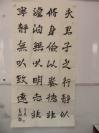 夫君子之行靜以
修身儉以養德非
澹泊無以明志非
寧靜無以致遠